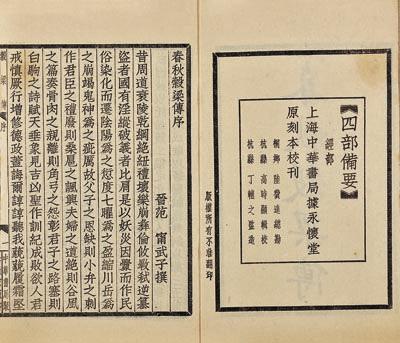 四部備要
經部
上海中華書局據永懷堂
原刻本校刊
桐鄉 陸費逵總勘
杭縣 高時顯輯校
杭縣 丁輔之監造
版權所有不准翻印
春秋穀梁傳序
晉范 甯武子撰
昔周道衰陵乾綱絕紐禮壞樂崩彝倫攸斁弒逆篡
盜者國有淫縱破義者比肩是以妖災因釁而作民
俗染化而遷陰陽爲之愆度七曜爲之盈縮川岳爲
之崩竭鬼神爲之疵厲故父子之恩缺則小弁之刺
作君臣之禮廢則桑扈之諷興夫婦之道絕則谷風
之篇奏骨肉之親離則角弓之怨彰君子之路塞則
白駒之詩賦天垂象見吉凶聖作訓紀成敗欲人君
戒慎厥行增修德政蓋誨爾諄諄聽我藐藐履霜堅